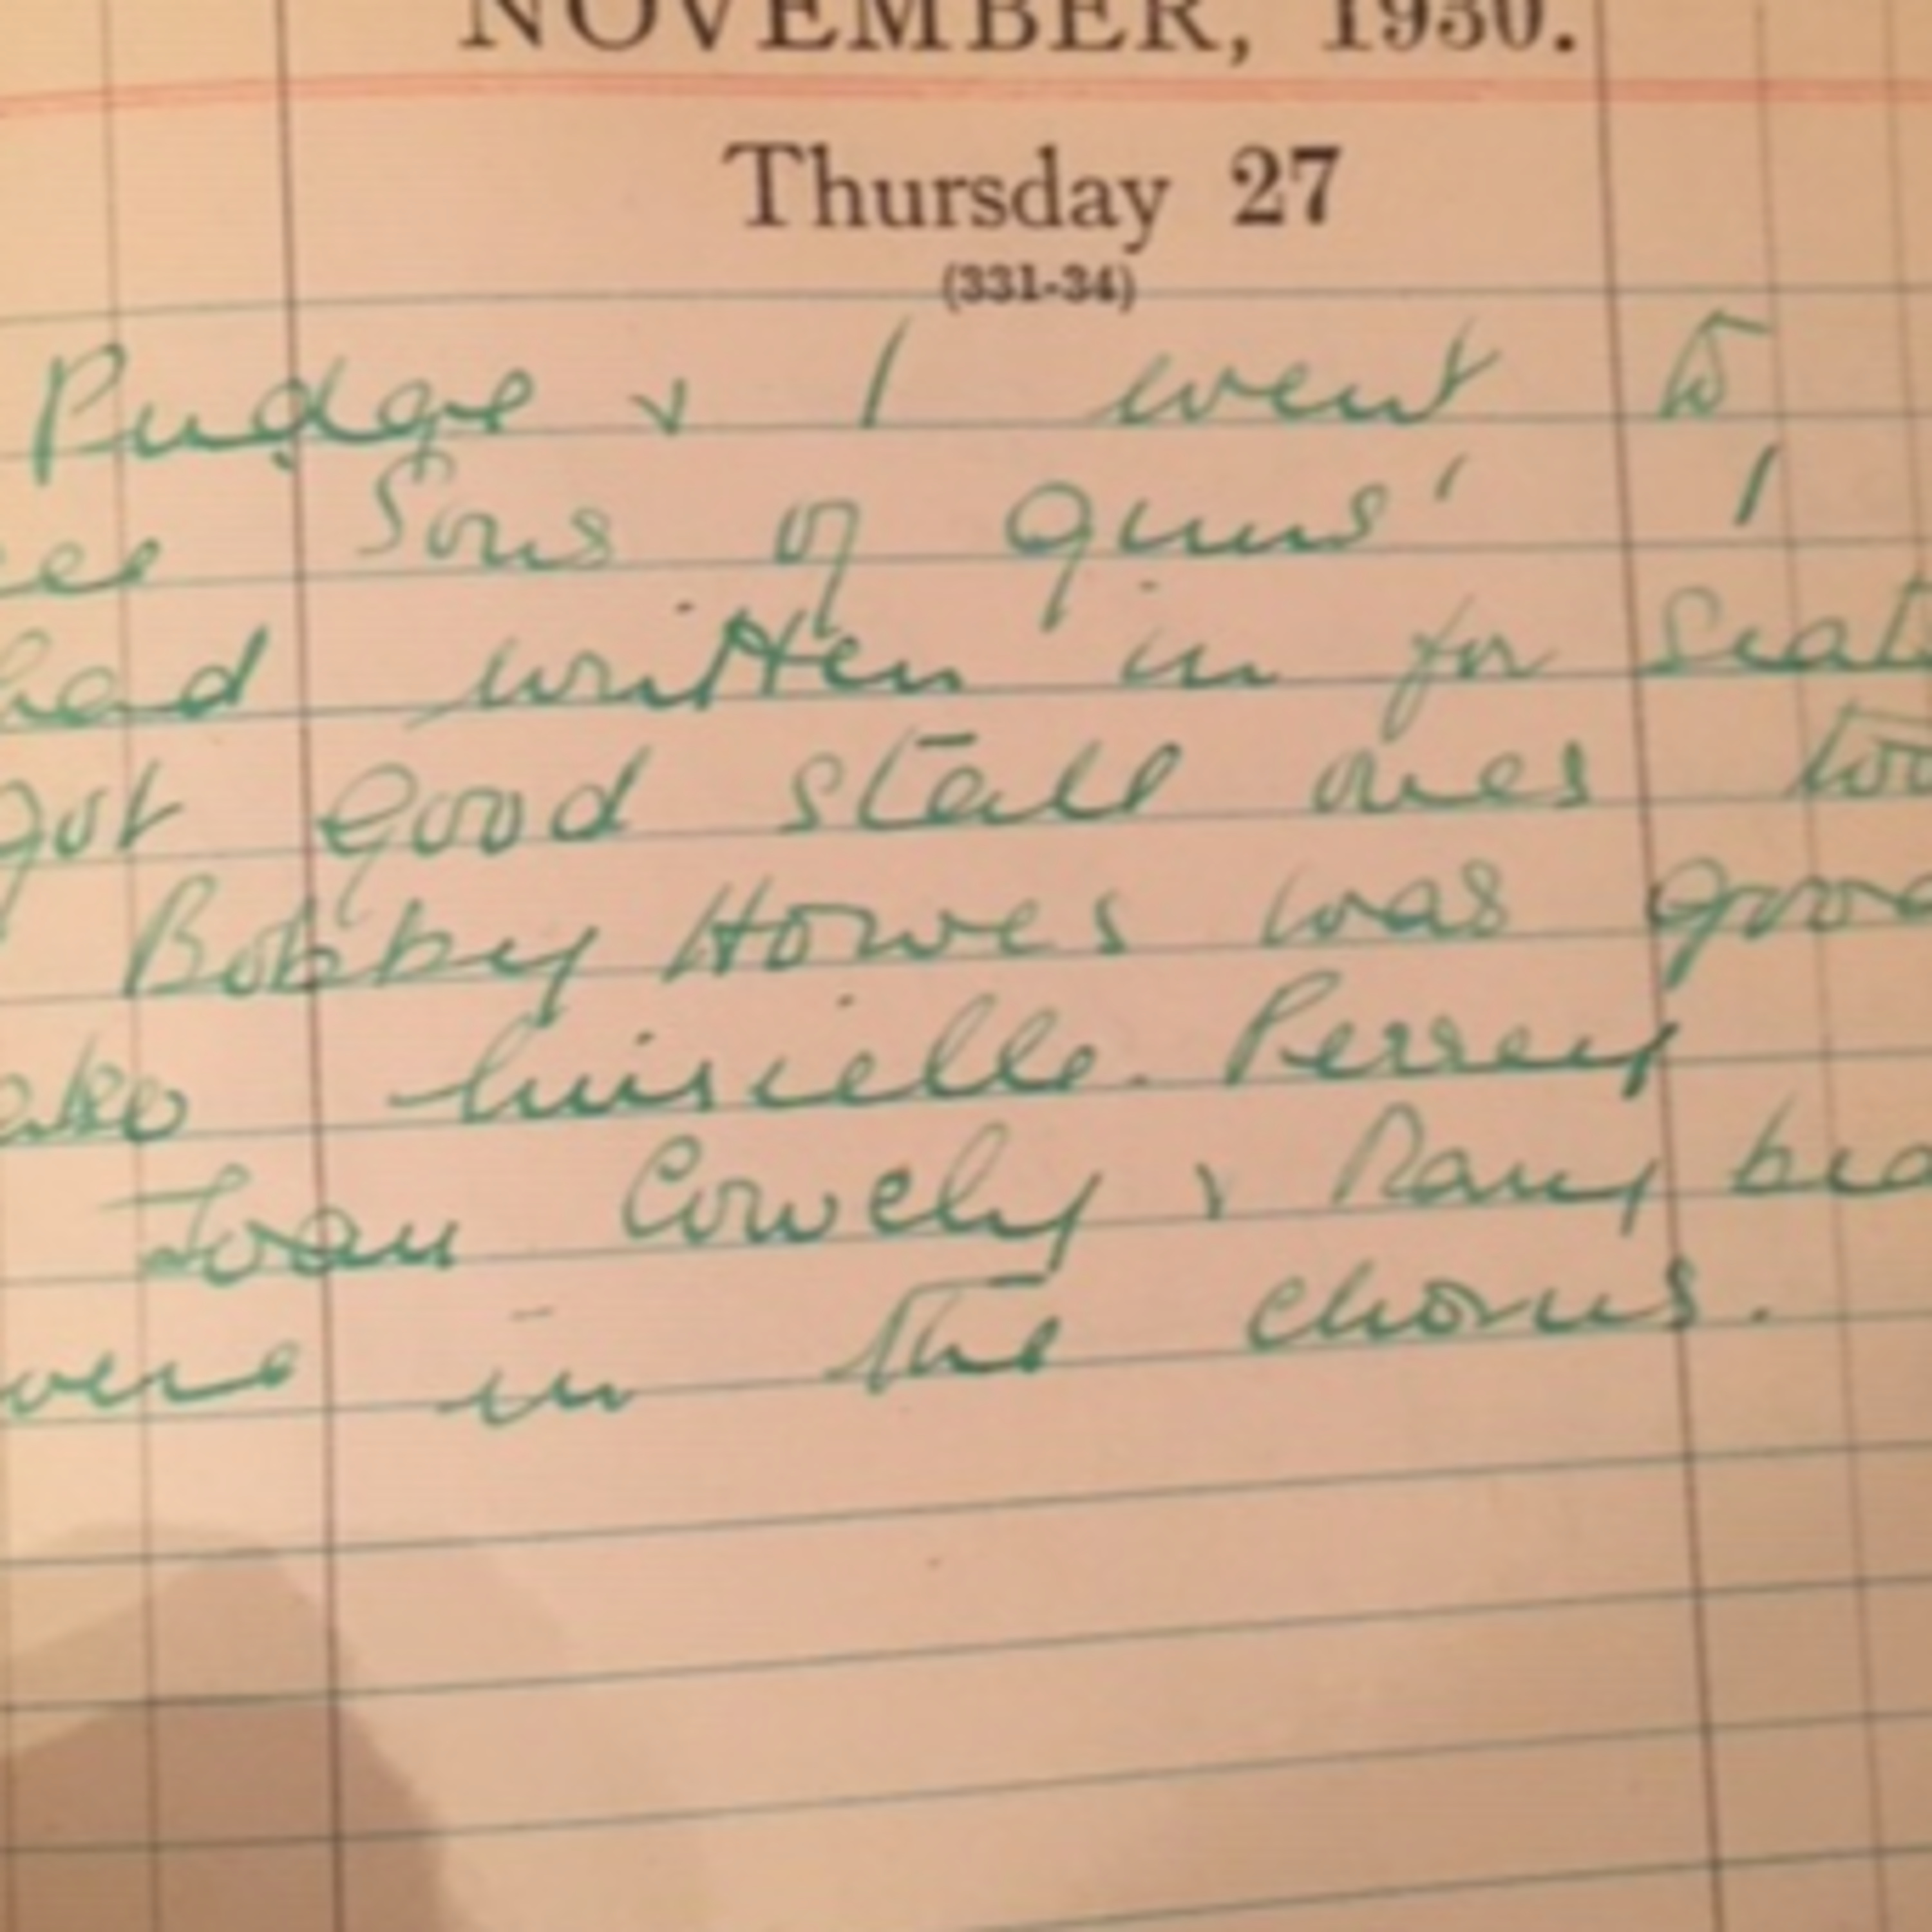 NOVEMBER, 1930.
Thursday 27
(331-34)
Pudge & I went to
see Sons of Guns' I
had written in for seats
got good stall ones too
Bobby Howes was good
also Mireille Perrey
Joan Cowely &
were in the chorus.